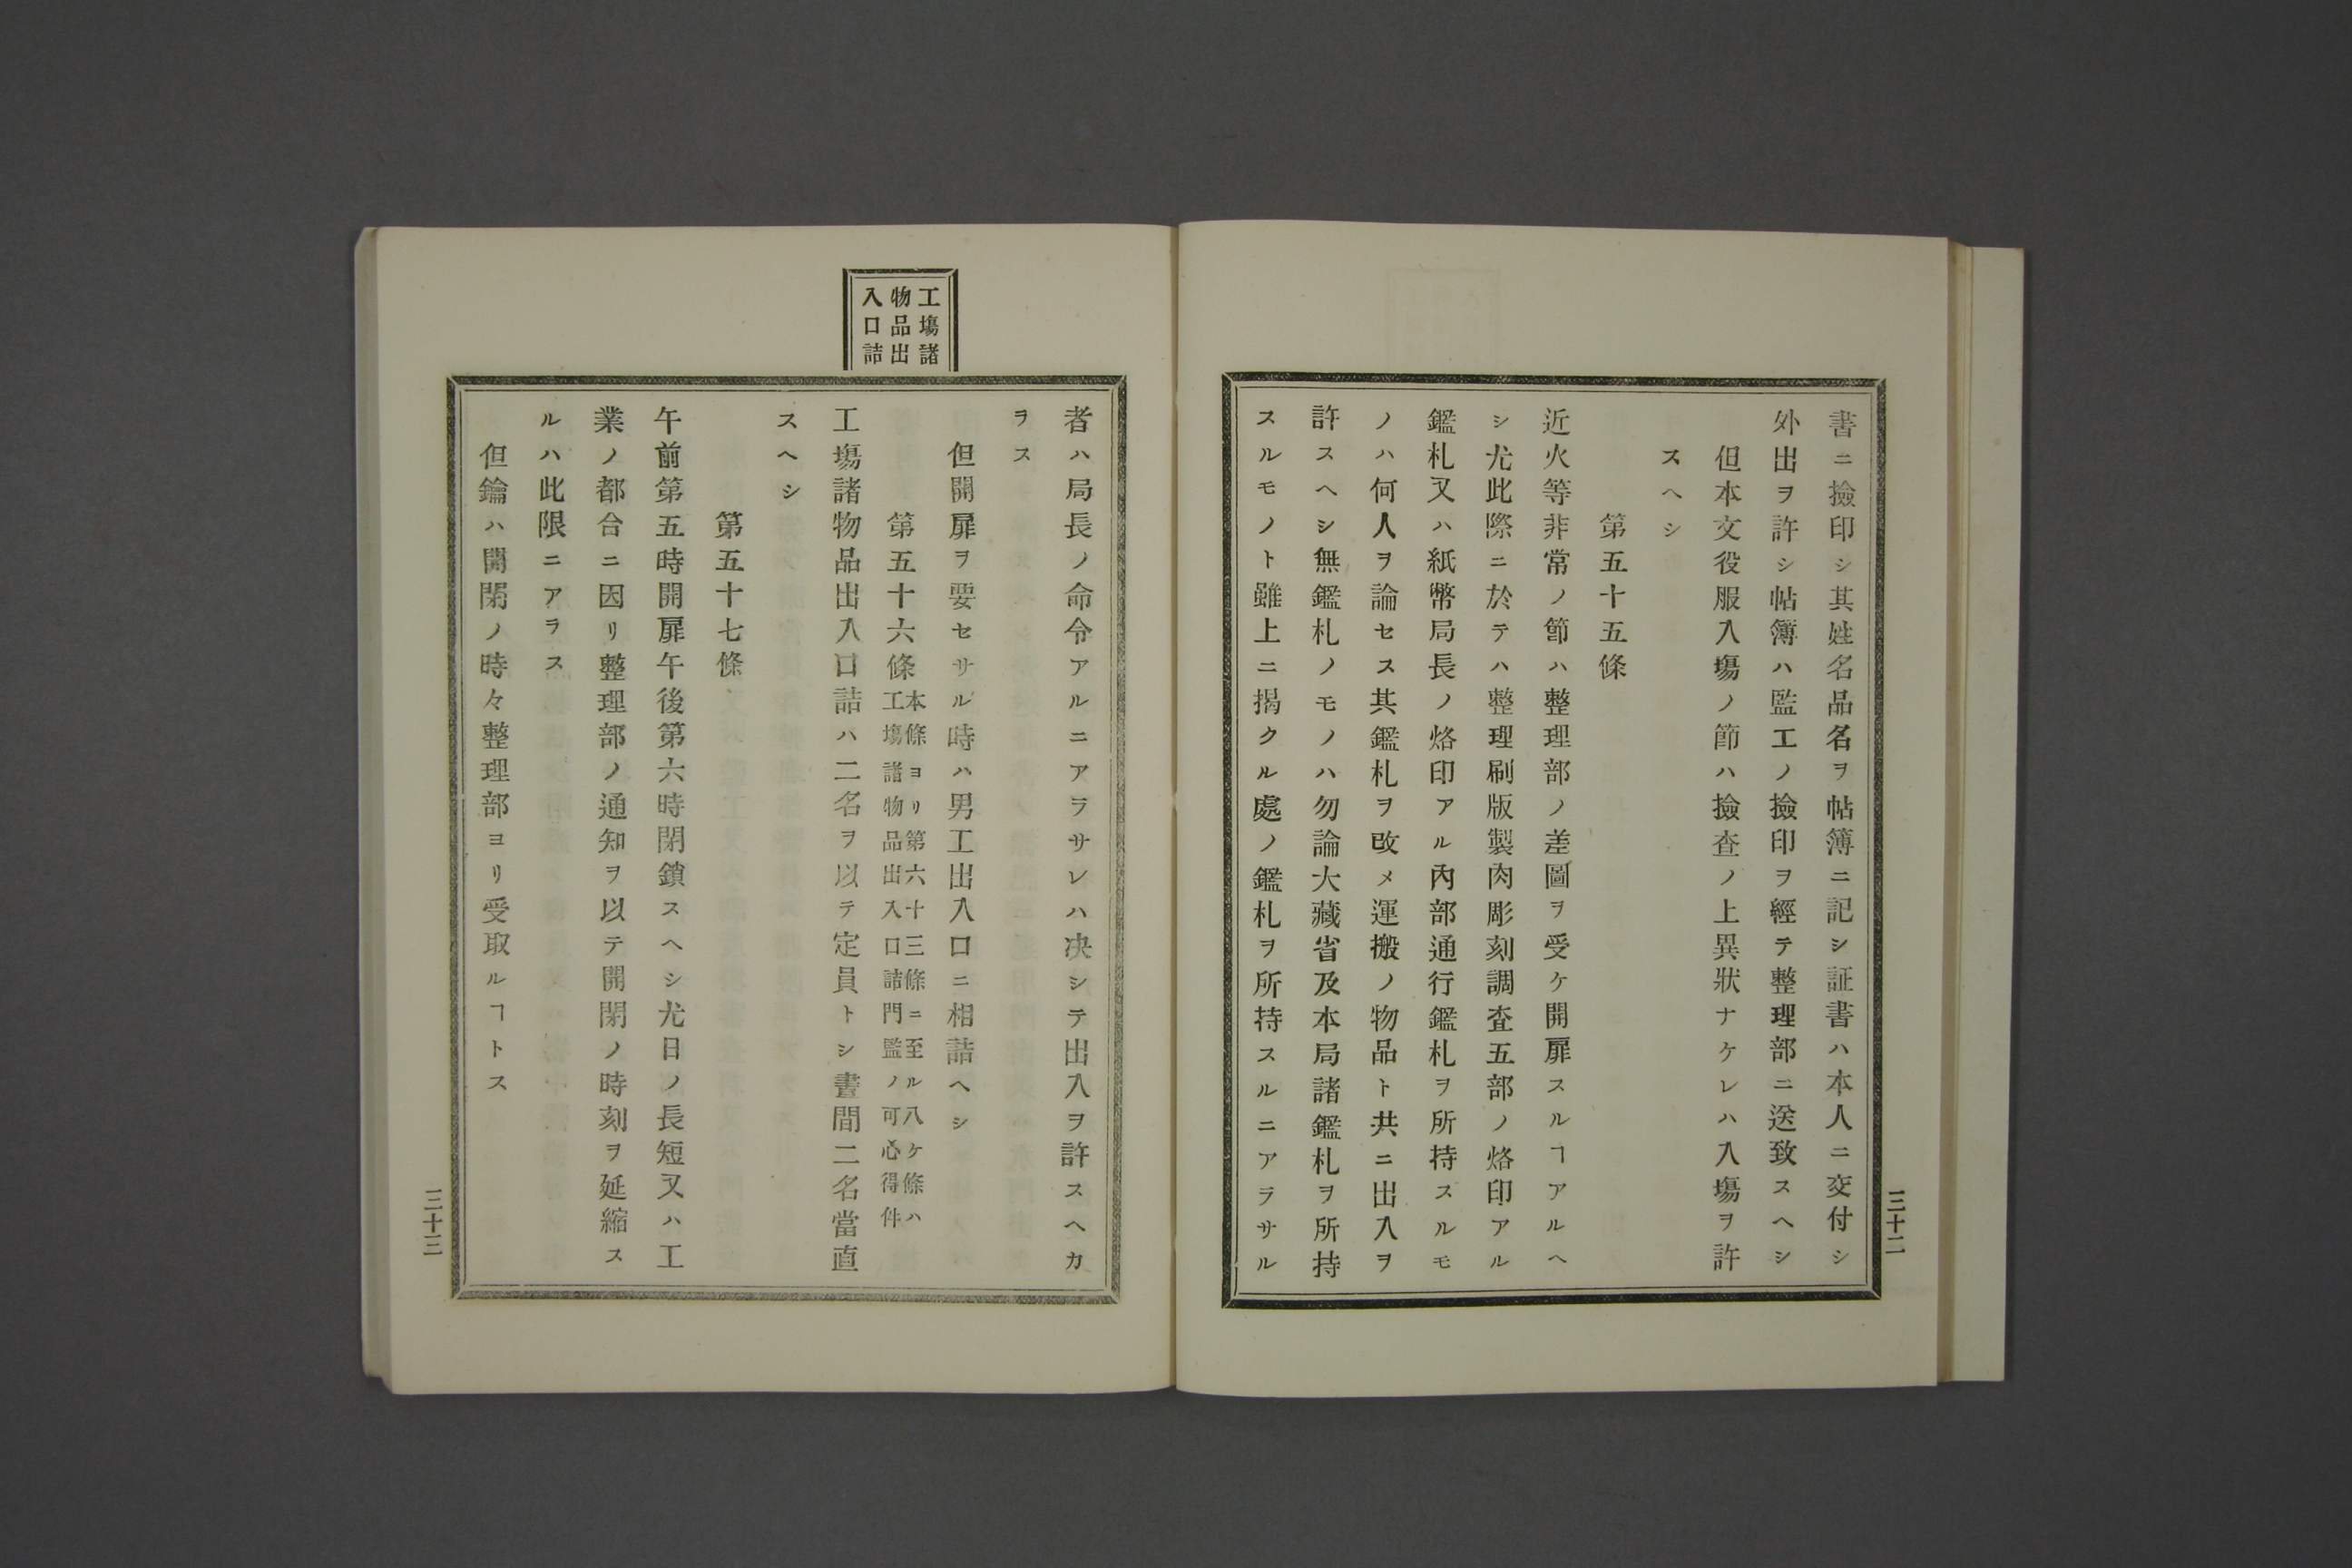 書ニ撿印シ其姓名品名ヲ帖簿ニ記シ証書ハ本人ニ交付シ
外出ヲ許シ帖簿ハ監工ノ撿印ヲ經テ整理部ニ送致スヘシ
但本文役服入塲ノ節ハ撿査ノ上異狀ナケレハ入塲ヲ許
スヘシ
第五十五條
近火等非常ノ節ハ整理部ノ差圖ヲ受ケ開扉スルヿアルヘ
シ尤此際ニ於テハ整理刷版製肉彫刻調査五部ノ烙印アル
鑑札又ハ紙幣局長ノ烙印アル內部通行鑑札ヲ所持スルモ
ノハ何人ヲ論セス其鑑札ヲ改メ運搬ノ物品ト共ニ出入ヲ
許スヘシ無鑑札ノモノハ勿論大藏省及本局諸鑑札ヲ所持
スルモノト雖上ニ揭クル處ノ鑑札ヲ所持スルニアラサル
三十二
工塲諸
物品出
入口詰
者ハ局長ノ命令アルニアラサレハ决シテ出入ヲ許スヘカ
ラス
但開扉ヲ要セサル時ハ男工出入口ニ相詰ヘシ
第五十六條
本條ヨリ第六十三條ニ至ル八ケ條ハ
工塲諸物品出入口詰門監ノ可心得件
工塲諸物品出入口詰ハ二名ヲ以テ定員トシ晝間二名當直
スヘシ
第五十七條
午前第五時開扉午後第六時閉鎖スヘシ尤日ノ長短又ハ工
業ノ都合ニ因リ整理部ノ通知ヲ以テ開閉ノ時刻ヲ延縮ス
ルハ此限ニアラス
但鑰ハ開閉ノ時々整理部ヨリ受取ルヿトス
三十三